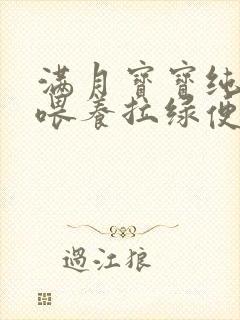 满月寶寶纯
喂养拉绿便
過江狼